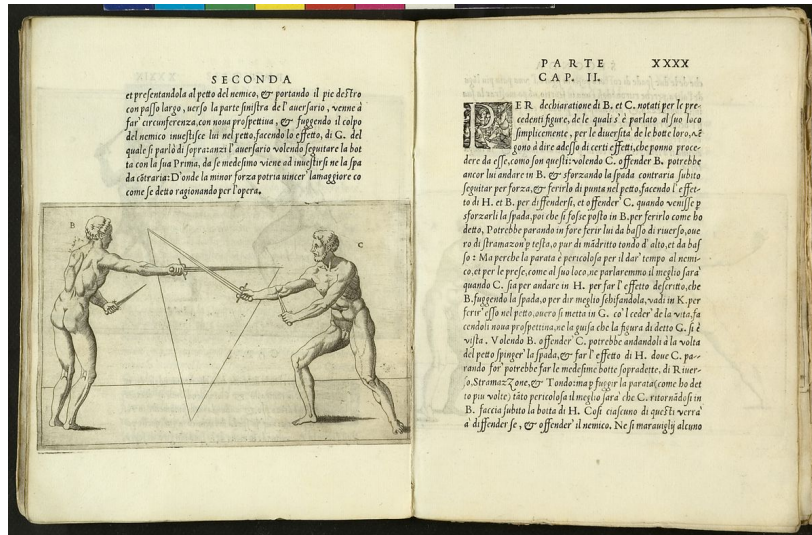 SECONDA
et presentandola al petto del nemico, & portando il pie destro
con passo largo, uerso la parte sinistra de l'auersario, venne à
far' circunferenza, con noua prospettiua, & fuggendo il colpo
del nemico inuestisce lui nel petto, facendo lo effetto, di G. del
quale si parlò di sopra: anzi l'auersario volendo seguitare la bot
ta con la sua Prima, da se medesimo viene ad inuestirsi ne la spa
da cōtraria: D'onde la minor forza potria uincer' la maggiore co
me se detto ragionando per l'opera.
B
C
PARTE XXXX
CAP. II.
PER dechiaratione di B. et C. notati per le pre-
cedenti figure, de le quali s'è parlato al suo loco
simplicemente, per le diuersità de le botte loro, vē
gono à dire adesso di certi effetti, che ponno proce-
dere da esse, como son questi: volendo C. offender B. potrebbe
ancor lui andare in B. & sforzando la spada contraria subito
seguitar per forza, & ferirlo di punta nel petto, facendo l'effet-
to di H. et B. per diffendersi, et offender' C. quando venisse p
sforzarli la spada, poi che si fosse posto in B. per ferirlo come ho
detto, Potrebbe parando in fore ferir lui da basso di riuerso, oue
ro di stramazon' p testa, o pur di mādritto tondo d'alto, et da bas
so: Ma perche la parata è pericolosa per il dar' tempo al nemi-
co, et per le prese, come al suo loco, ne parlaremmo il meglio sarà
quando C. sia per andare in H. per far l'effetto descritto, che
B. fuggendo la spada, o per dir meglio schifandola, vadi in K. per
ferir' esso nel petto, ouero si metta in G. co'l ceder' de la vita, fa
cendoli noua prospettiua, ne la guisa che la figura di detto G. si è
vista, Volendo B. offender' C. potrebbe andandoli à la volta
del petto spinger' la spada, & far l'effetto di H. doue C. pa-
rando for' potrebbe far le medesime botte sopradette, di Riuer-
so, Stramazzone, & Tondo: ma p fuggir la parata (come ho det
to piu volte) tāto pericolosa il meglio sarà che C. ritornādosi in
B. faccia subito la botta di H. Cosi ciascuno di questi verra'
à diffender se, & offender' il nemico. Ne si marauiglij alcuno